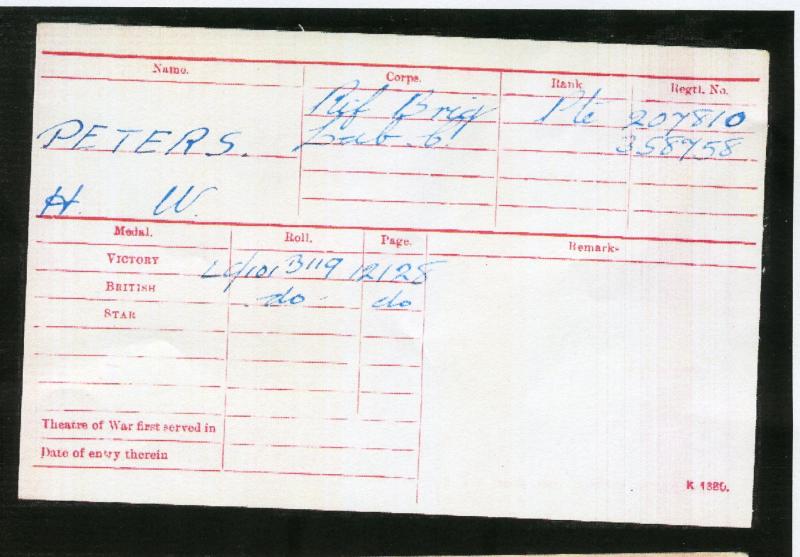 Name. Corps. Rank Regtl. No.
Rif Brig Pte 207810
PETERS. Lab. C. 358758
H. W.
Medal. Roll. Page. Remarks
VICTORY LC/101 B119 12128
BRITISH do do
STAR
Theatre of War first served in
Date of entry therein
K 1380.